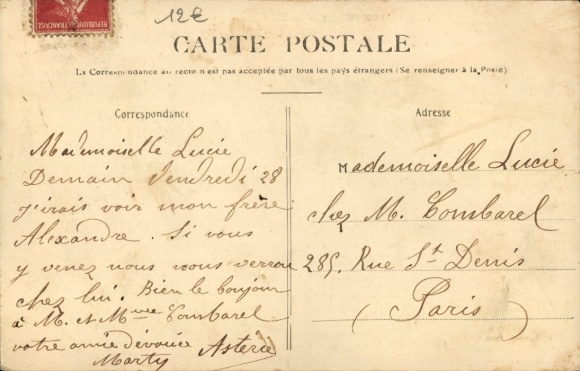 REPUBLIQUE FRANÇAISE
12€
CARTE POSTALE
La Correspondance au recto n'est pas acceptée par tous les pays étrangers (Se renseigner à la Poste)
Correspondance
Mademoiselle Lucie
Demain Vendredi 28
j'irais voir mon frère
Alexandre. Si vous
y venez nous vous verrou
chez lui. Bien le boujour
à M. et Mme Combarel
votre amie dévouée Asterie
Marty
Adresse
Mademoiselle Lucie
chez M. Combarel
285. Rue St Denis
(Paris)